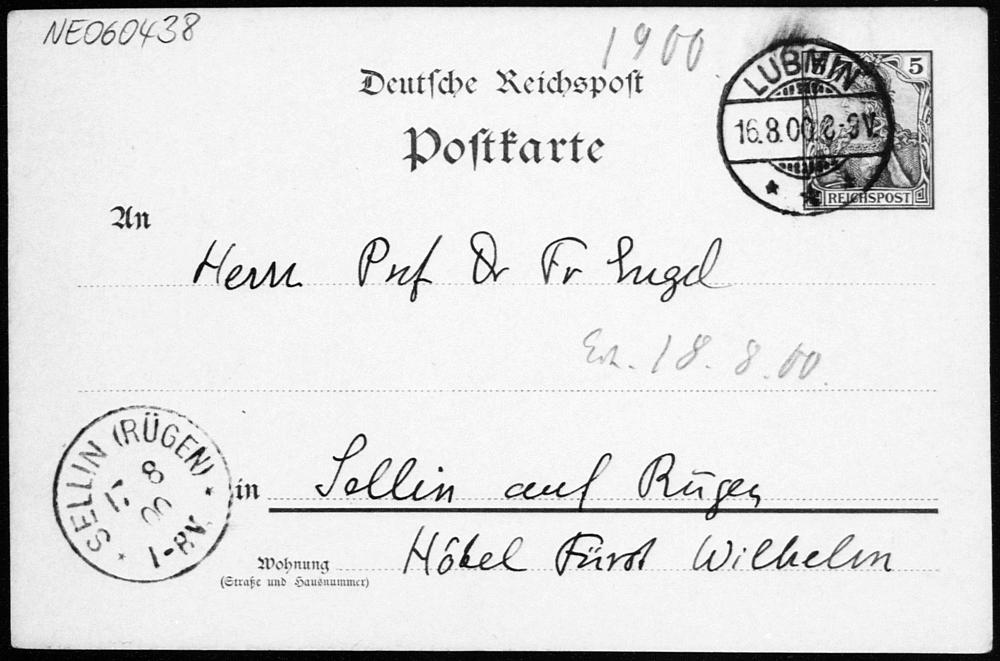 NE060438
1900.
Deutsche Reichspost
Postkarte
LUBMIN
16.8.00. 8-9V.
5
REICHSPOST
An
Herrn Prof Dr Fr Engel
Erh. 18.8.00.
SELLIN (RÜGEN)
17 8
00
1-8N.
in Sellin auf Rügen
Wohnung Hôtel Fürst Wilhelm
(Straße und Hausnummer)